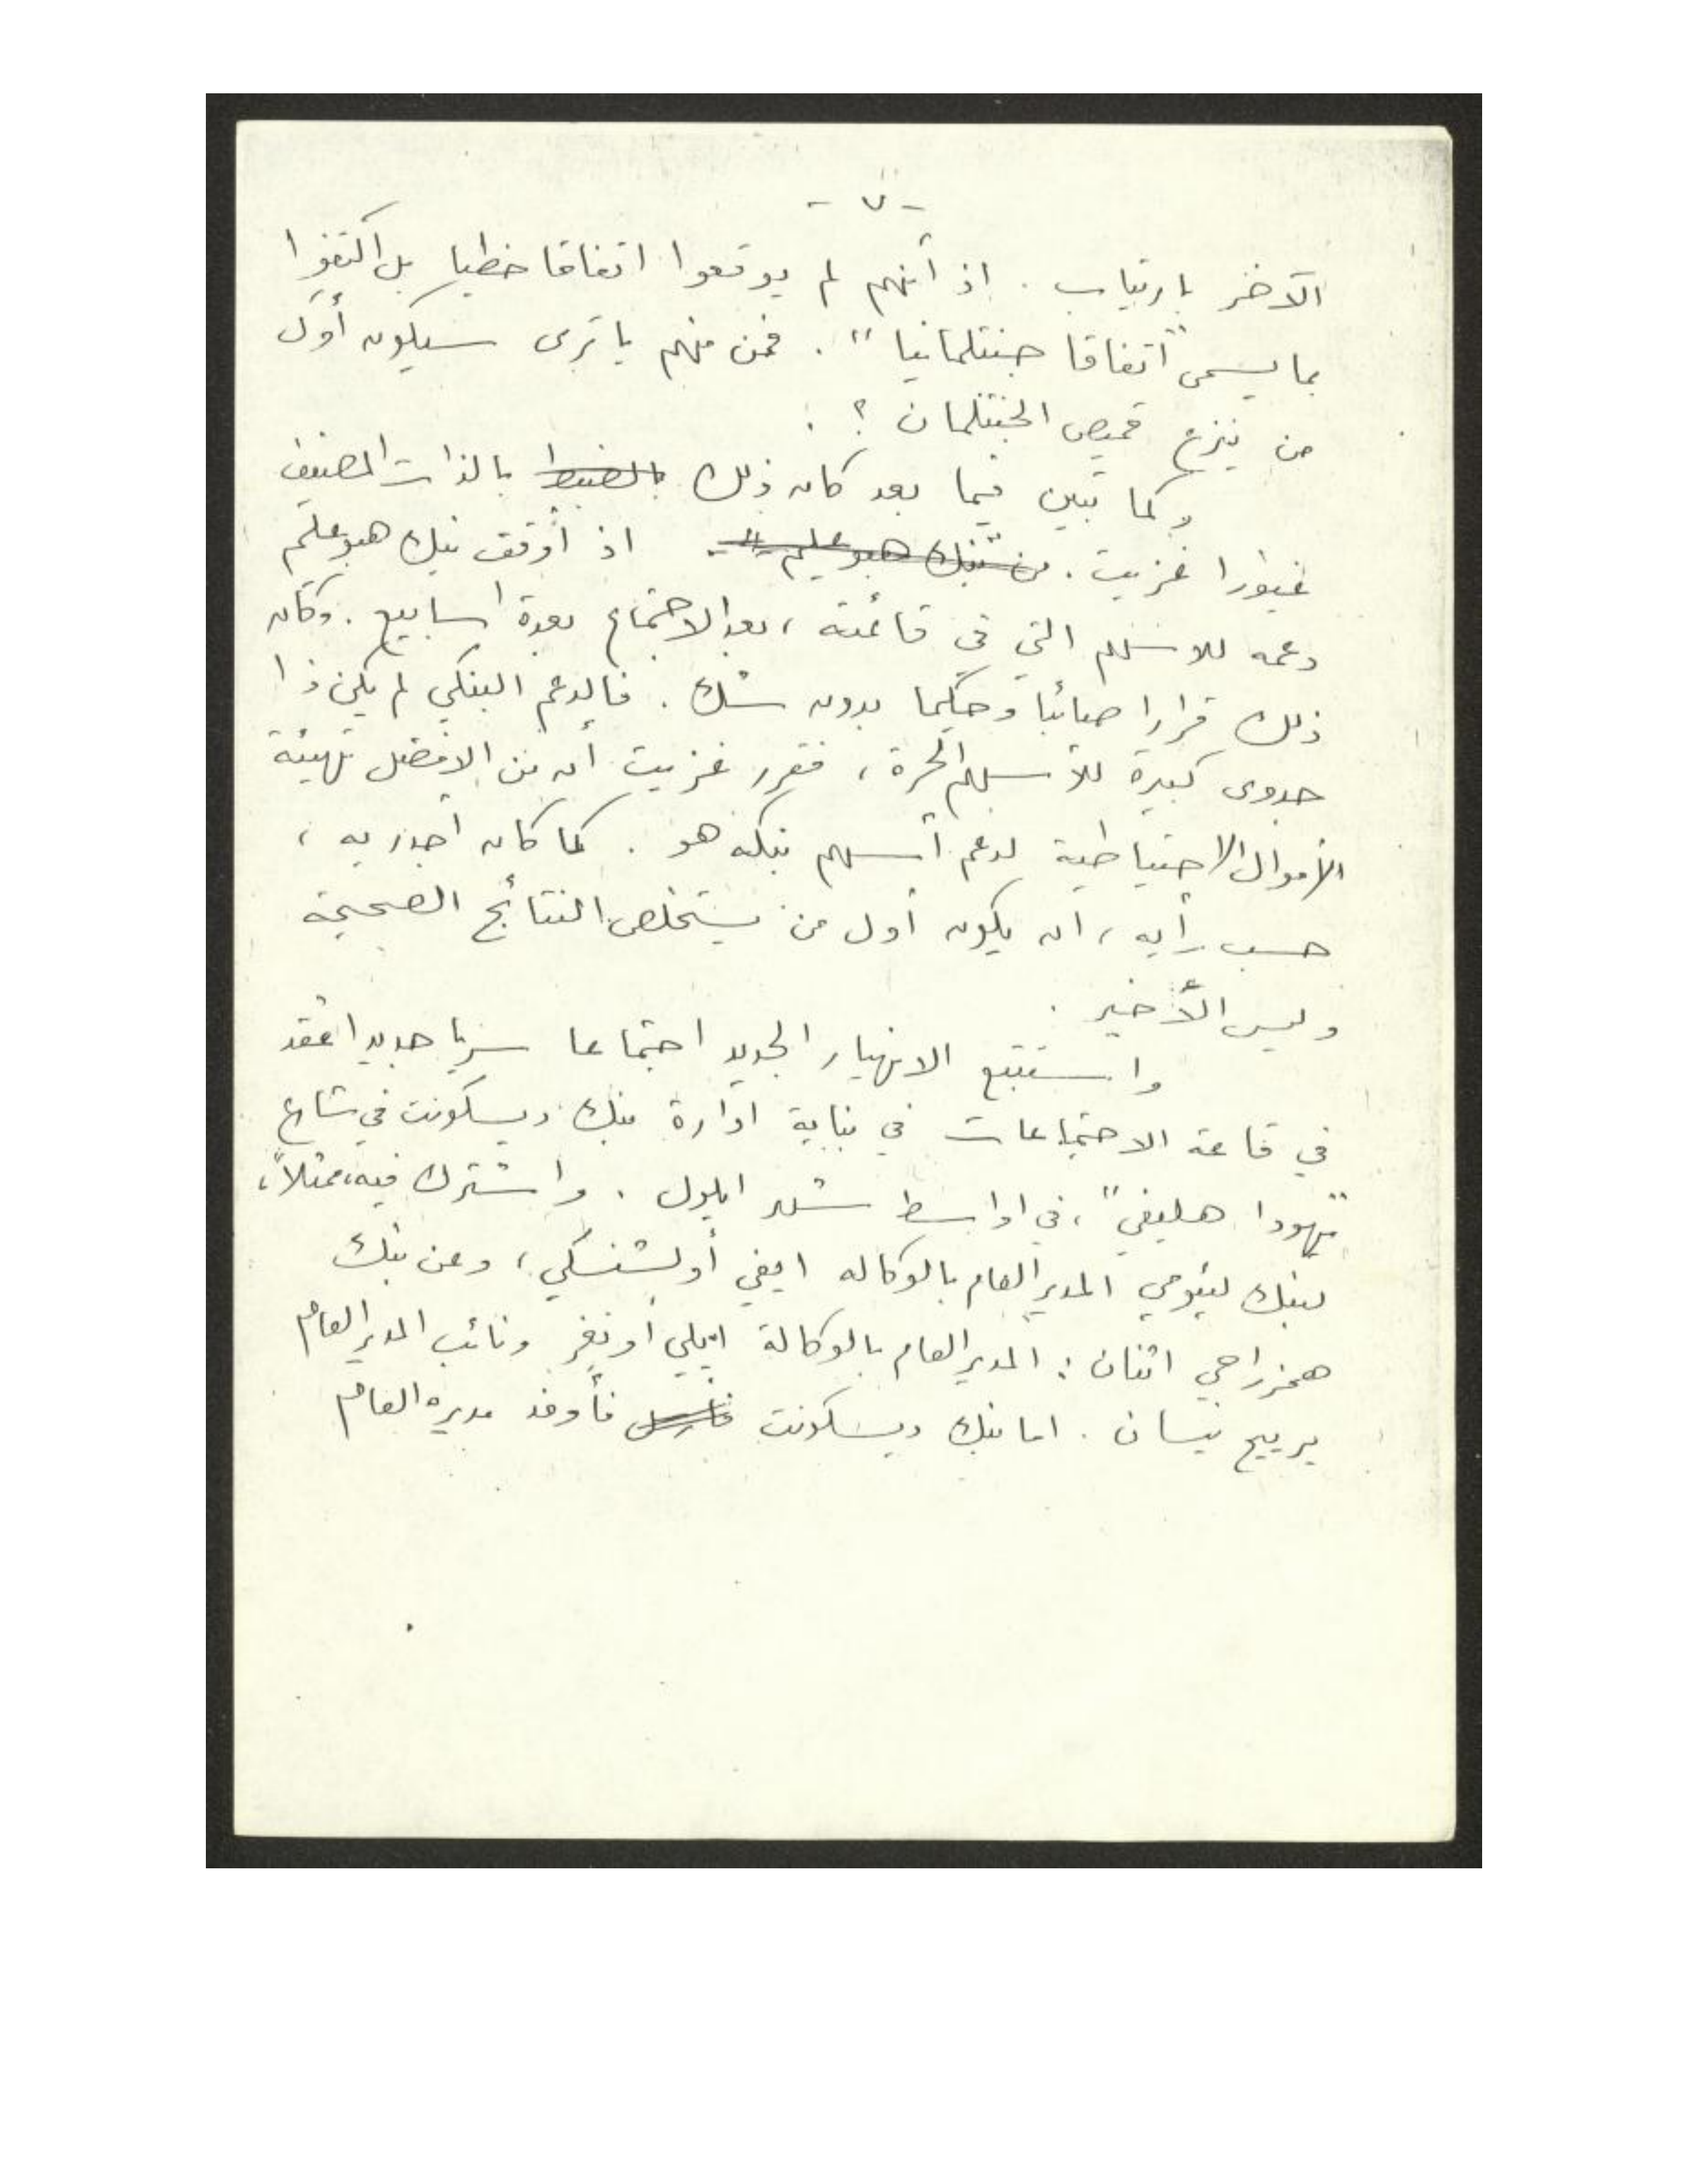 - ٧ -
الآخر بارتياب . اذ أنهم لم يوقعوا اتفاقا خطيا بل اكتفوا
بما يسمى "اتفاقا جنتلمانيا" . فمن منهم يا ترى سيكون أول
من ينزع قميص الجنتلمان ؟ .
وكما تبين فيما بعد كان ذلك بالضبط بالذات المضيف
غيورا غزيت . من بنك هبوعليم اذ أوقف بنك هبوعليم
دعمه للاسهم التي في قائمته ، بعد الاجتماع بعدة اسابيع . وكان
ذلك قرارا صائبا وحكيما بدون شك . فالدعم البنكي لم يكن ذا
جدوى كبيرة للأسهم الحرة ، فقرر غزيت أن من الافضل تهيئة
الأموال الاحتياطية لدعم أسهم بنكه هو . كما كان أجدر به ،
حسب رأيه ، ان يكون أول من يستخلص النتائج الصحيحة
وليس الأخير .
واستتبع الانهيار الجديد اجتماعا سريا جديدا عقد
في قاعة الاجتماعات في بناية ادارة بنك ديسكونت في شارع
"يهودا هليفي" ، في اواسط شهر ايلول . واشترك فيه ، ممثلاً ،
لبنك لئومي المدير العام بالوكاله ايفي أولشنسكي ، وعن بنك
همزراحي اثنان : المدير العام بالوكالة ايلي اونغر ونائب المدير العام
يرييح نيسان . اما بنك ديسكونت فأرسل فأوفد مديره العام